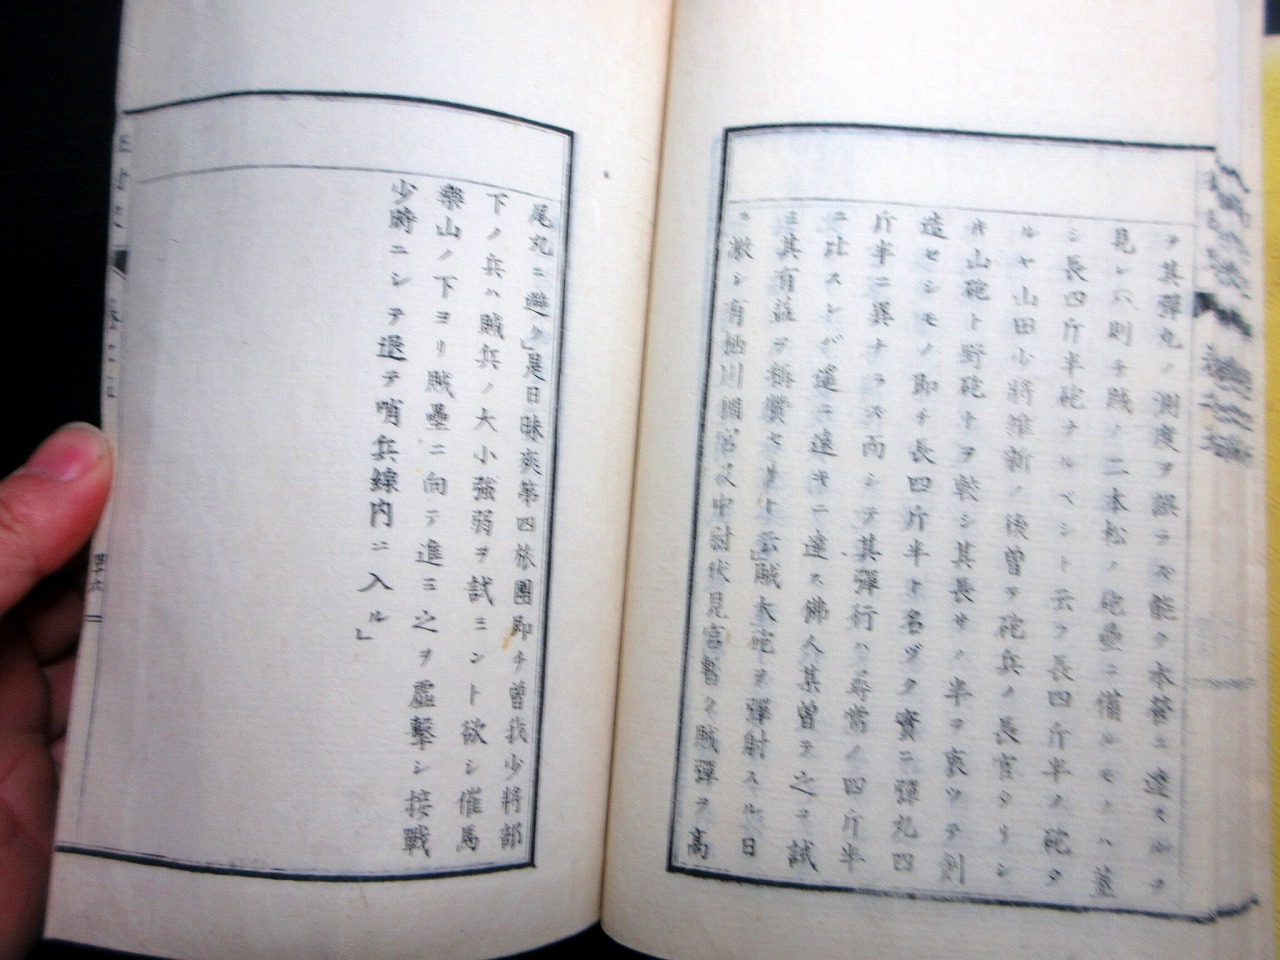 ヲ其彈丸ノ測度ヲ誤テズ能ク本營ニ達スルヲ
見レバ則チ賊ノ二本松ノ砲壘ニ備ルモノハ蓋
シ長四斤半砲ナルベシト云フ長四斤半ノ砲タ
ルヤ山田少將維新ノ後曾テ砲兵ノ長官タリシ
キ山砲ト野砲トヲ較シ其長サノ半ヲ衷ツテ創
造セシモノ即チ長四斤半ト名ヅク實ニ彈丸四
斤半ニ異ナラズ而シテ其彈行ハ尋常ノ四斤半
ニ比スレバ遙ニ遠キニ達ス佛人某曾テ之ヲ試
其有益ヲ稱賛セリト云」賊大砲ヲ彈射スル日
ニ激シ有栖川
伏見宮暫ク賊彈ヲ高
尾丸ニ避ク」是日昧爽第四旅團即チ曾我少將部
下ノ兵ハ賊兵ノ大小強弱ヲ試ミント欲シ催馬
樂山ノ下ヨリ賊壘ニ向テ進ミ之ヲ虛擊シ接戰
少時ニシテ還テ哨兵線内ニ入ル」